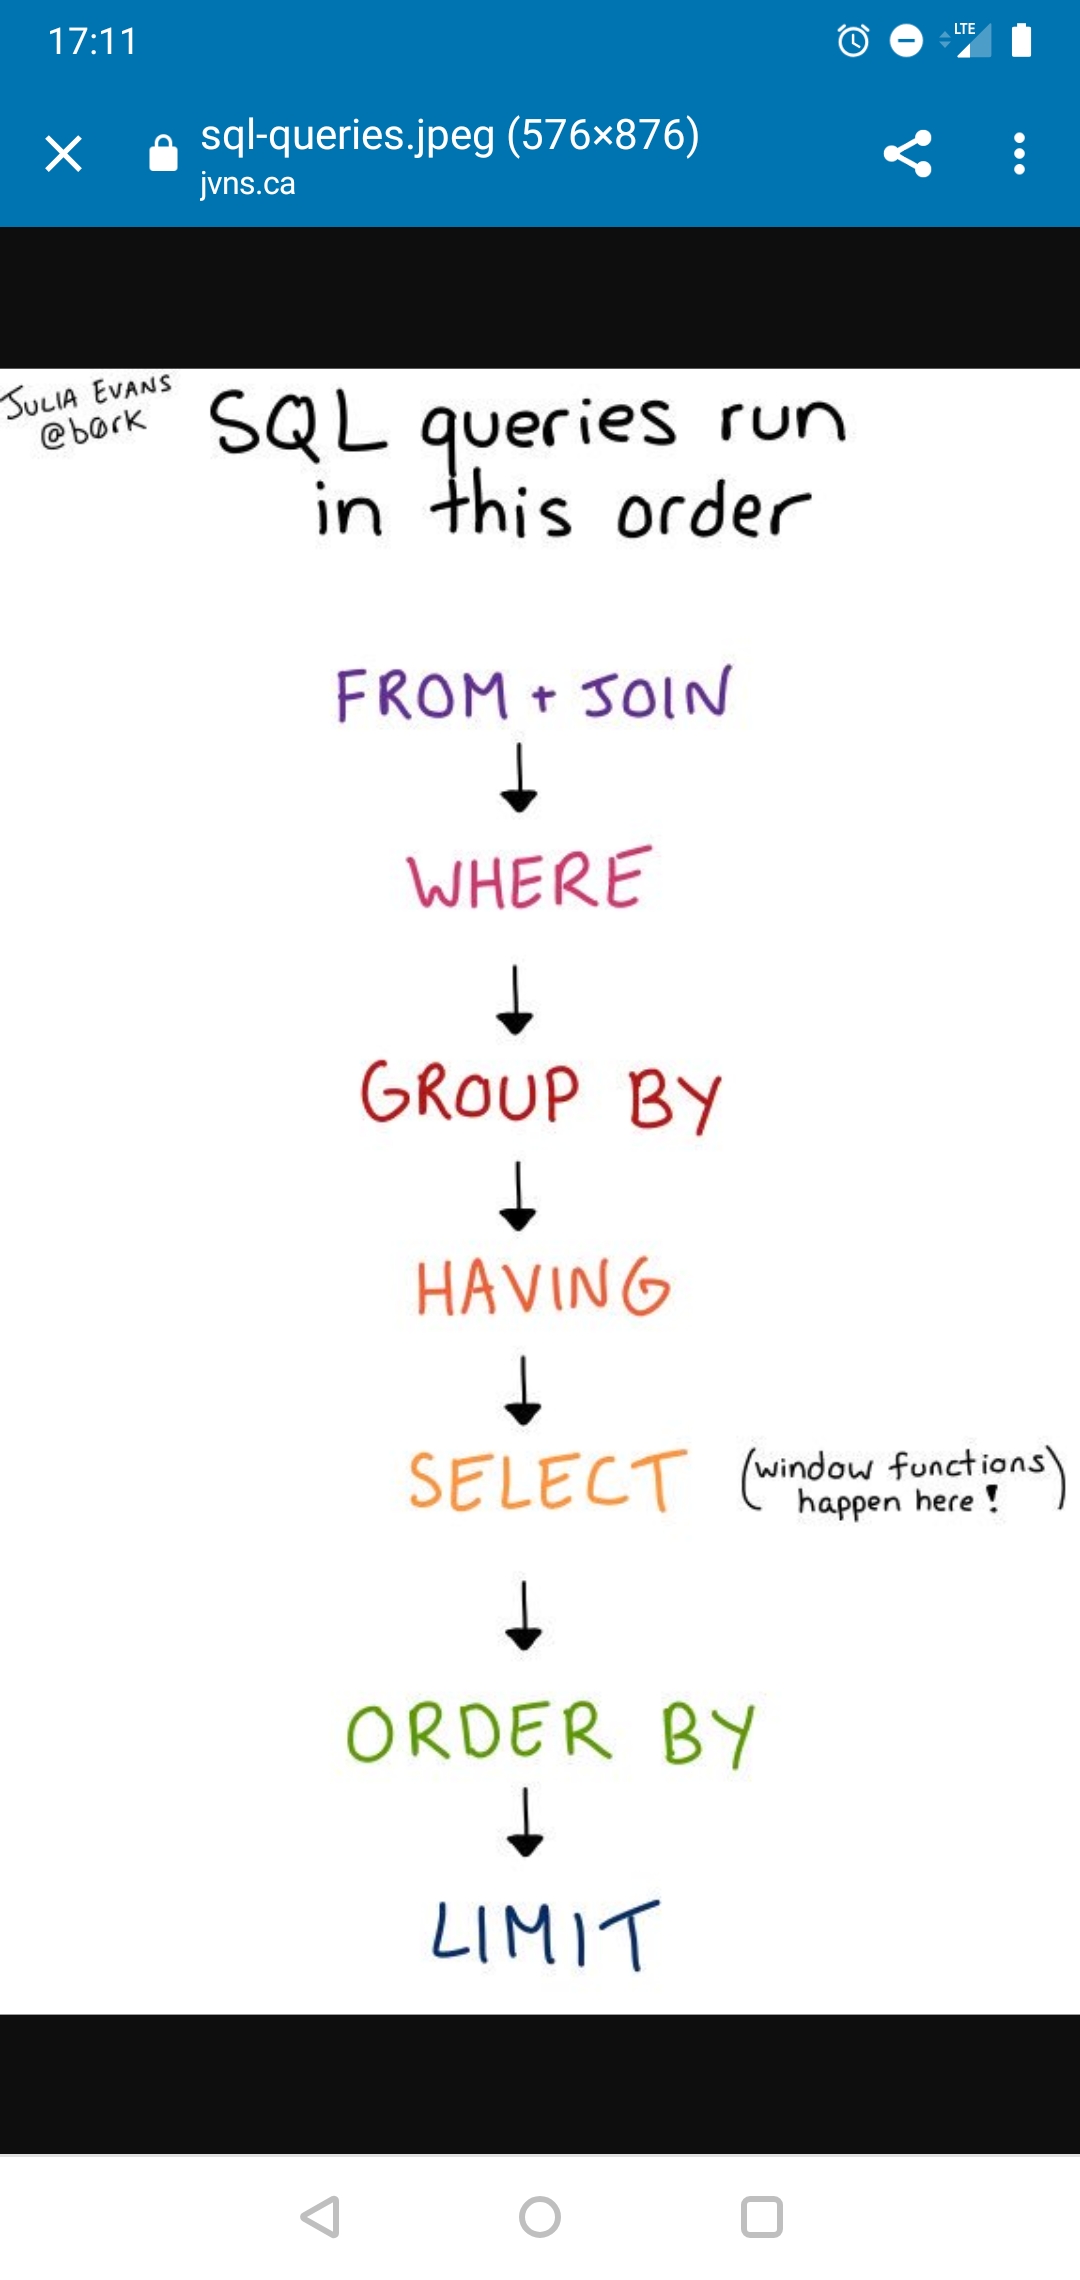 17:11
LTE
sql-queries.jpeg (576×876)
jvns.ca
JULIA EVANS
@bork
SQL queries run
in this order
FROM + JOIN
WHERE
GROUP BY
HAVING
SELECT
(window functions
happen here!)
ORDER BY
LIMIT